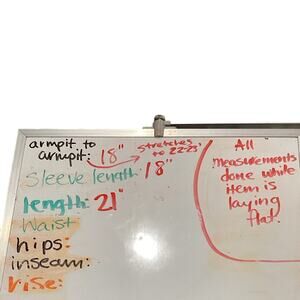 armpit to
armpit: 18" stretches
to 22-23"
Sleeve length: 18"
length: 21"
Waist
hips:
inseam:
rise:
All
measurements
done while
item is
laying
flat.